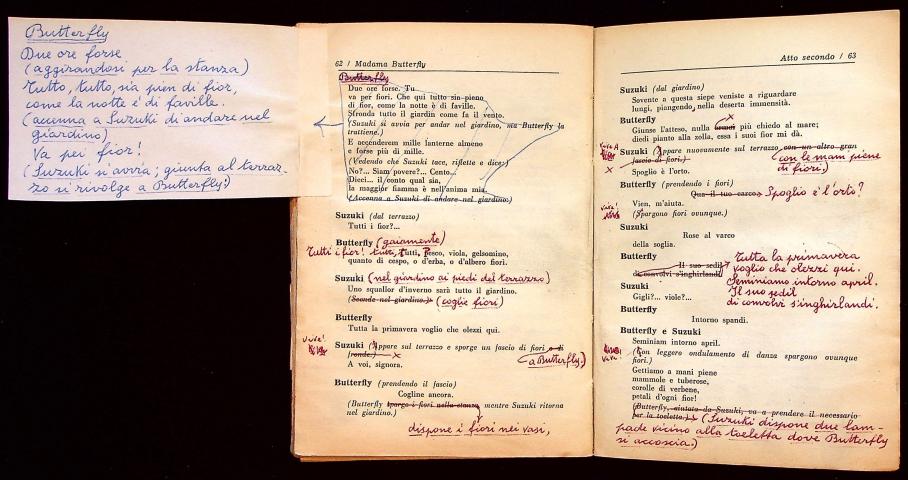 Butterfly
Due ore forse.
(aggirandosi per la stanza)
Tutto, tutto, sia pien di fior,
come la notte è di faville.
(accenna a Suzuki di andare nel
giardino)
Va pei fior!
(Suzuki si avvia; giunta al terraz-
zo si rivolge a Butterfly:)
62 / Madama Butterfly
Butterfly
Due ore forse. Tu
va per fiori. Che qui tutto sia pieno
di fior, come la notte è di faville.
Sfronda tutto il giardin come fa il vento.
(Suzuki si avvia per andar nel giardino, ma Butterfly la
trattiene.)
E accenderem mille lanterne almeno
e forse più di mille.
(Vedendo che Suzuki tace, riflette e dice:)
No?... Siam povere?... Cento...
Dieci... il conto qual sia,
la maggior fiamma è nell'anima mia.
(Accenna a Suzuki di andare nel giardino)
Suzuki (dal terrazzo)
Tutti i fior?...
Butterfly (gaiamente)
Tutti i fior! tutti, tutti. Pesco, viola, gelsomino,
quanto di cespo, o d'erba, o d'albero fiorì.
Suzuki (nel giardino ai piedi del terrazzo)
Uno squallor d'inverno sarà tutto il giardino.
(Scende nel giardino.) (coglie fiori)
Butterfly
Tutta la primavera voglio che olezzi qui.
Suzuki (Appare sul terrazzo e sporge un fascio di fiori e di
fronde.)
(a Butterfly.)
A voi, signora.
Butterfly (prendendo il fascio)
Cogline ancora.
(Butterfly sparge i fiori nella stanza, mentre Suzuki ritorna
nel giardino.)
dispone i fiori nei vasi,
Atto secondo / 63
Suzuki (dal giardino)
Sovente a questa siepe veniste a riguardare
lungi, piangendo, nella deserta immensità.
Butterfly
Giunse l'atteso, nulla ormai più chiedo al mare;
diedi pianto alla zolla, essa i suoi fior mi dà.
Suzuki (Appare nuovamente sul terrazzo con un altro gran
fascio di fiori.)
con le mani piene
di fiori.)
Spoglio è l'orto.
Butterfly (prendendo i fiori)
Qua il tuo carco. Spoglio è l'orto?
Vien, m'aiuta.
(Spargono fiori ovunque.)
Suzuki
Rose al varco
della soglia.
Butterfly
Il suo sedil
di convolvi s'inghirlandi.
Tutta la primavera
voglio che olezzi qui.
Seminiamo intorno april.
Il suo sedil
di convolvi s'inghirlandi.
Suzuki
Gigli?... viole?...
Butterfly
Intorno spandi.
Butterfly e Suzuki
Seminiam intorno april.
(Con leggero ondulamento di danza spargono ovunque
fiori.)
Gettiamo a mani piene
mammole e tuberose,
corolle di verbene,
petali d'ogni fior!
(Butterfly, aiutata da Suzuki, va a prendere il necessario
per la toeletta.) (Suzuki dispone due lam-
pade vicino alla toeletta dove Butterfly
si accoscia.)